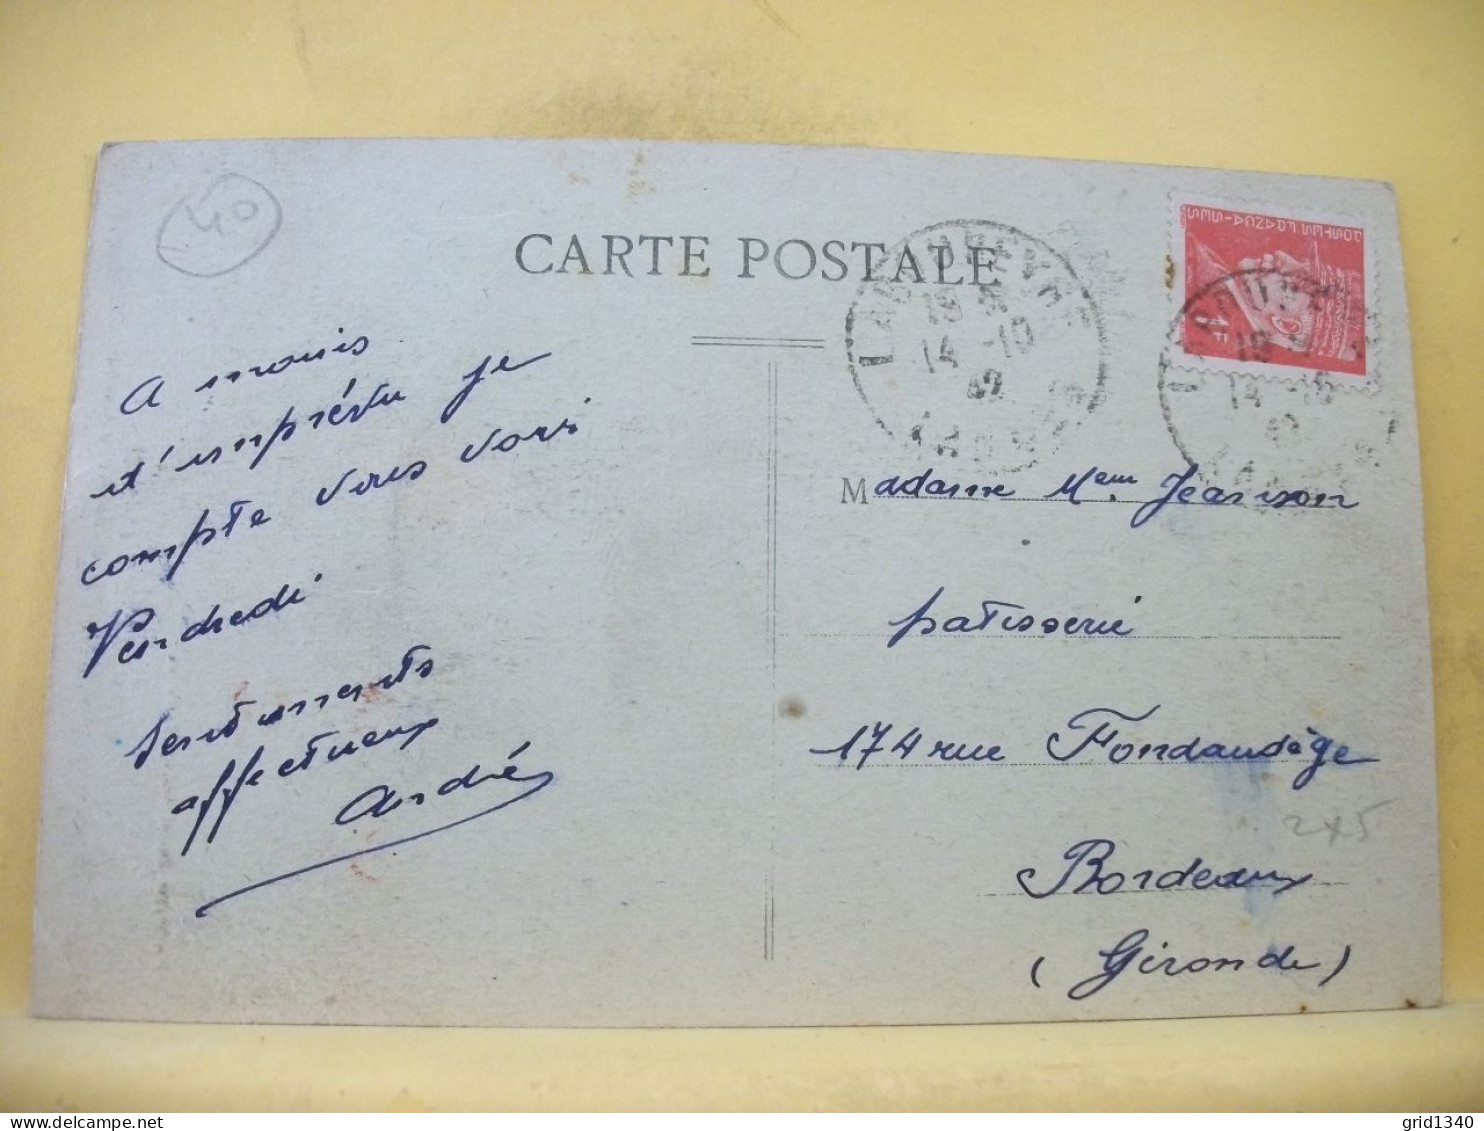 40
CARTE POSTALE
POSTES FRANÇAISES
1F
LABOUHEYRE
19
14 -10
42
LANDES
LABOUHEYRE
19
14 -10
42
LANDES
A moins
d'imprévu je
compte vous voir
Vendredi
Sentiments
affectueux
André
Madame Mem Jeanson
patisserie
174 rue Fondaudège
2x5
Bordeaux
(Gironde)
grid1340